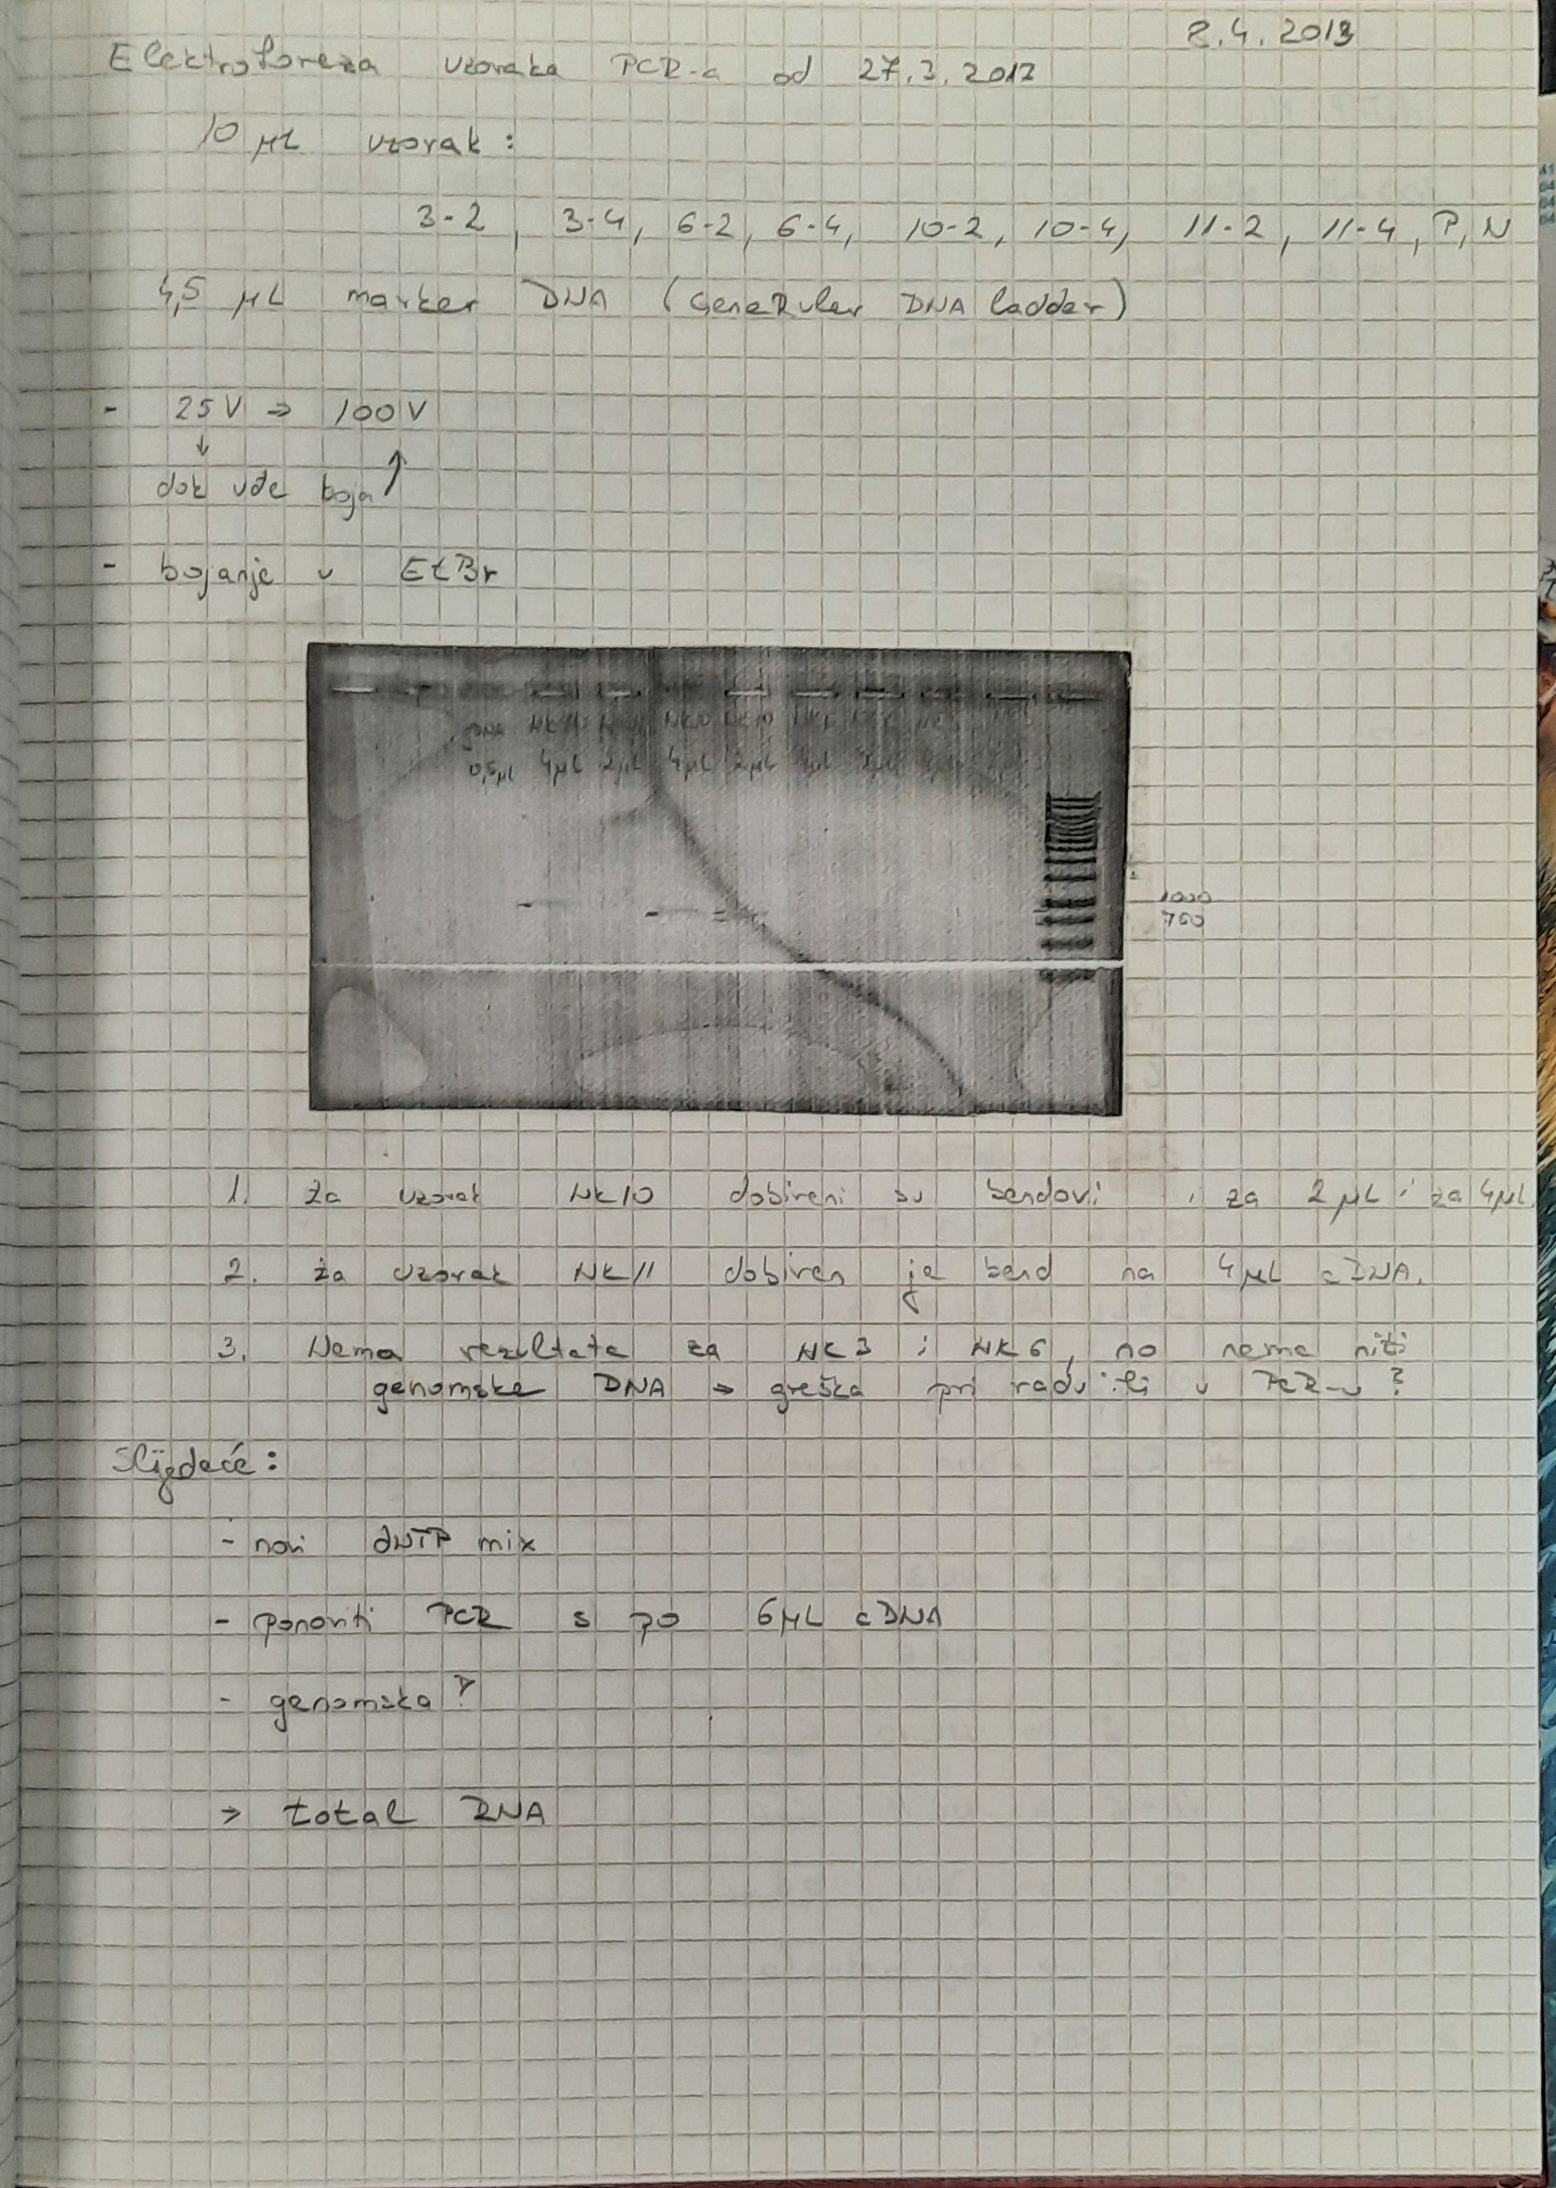 2.4.2013
Elektroforeza uzoraka PCR-a od 27.3.2013
10 µL uzorak:
3-2, 3-4, 6-2, 6-4, 10-2, 10-4, 11-2, 11-4, P, N
4,5 µL marker DNA (GeneRuler DNA ladder)
- 25V ⇒ 100V
↓
dok uđe boja ↑
- bojanje u EtBr
gDNA NK11 NK10 NK10
0,5µL 4µL 2µL 4µL 2µL µL
1000
750
1. Za uzorak NK10 dobiveni su bendovi i za 2µL i za 4µL
2. Za uzorak NK11 dobiven je bend na 4µL cDNA.
3. Nema rezultata za NK3 i NK6, no nema niti
genomske DNA → greška pri radu ili u PCR-u?
Slijedeće:
- novi dNTP mix
- ponoviti PCR s po 6µL cDNA
- genomska?
→ total RNA